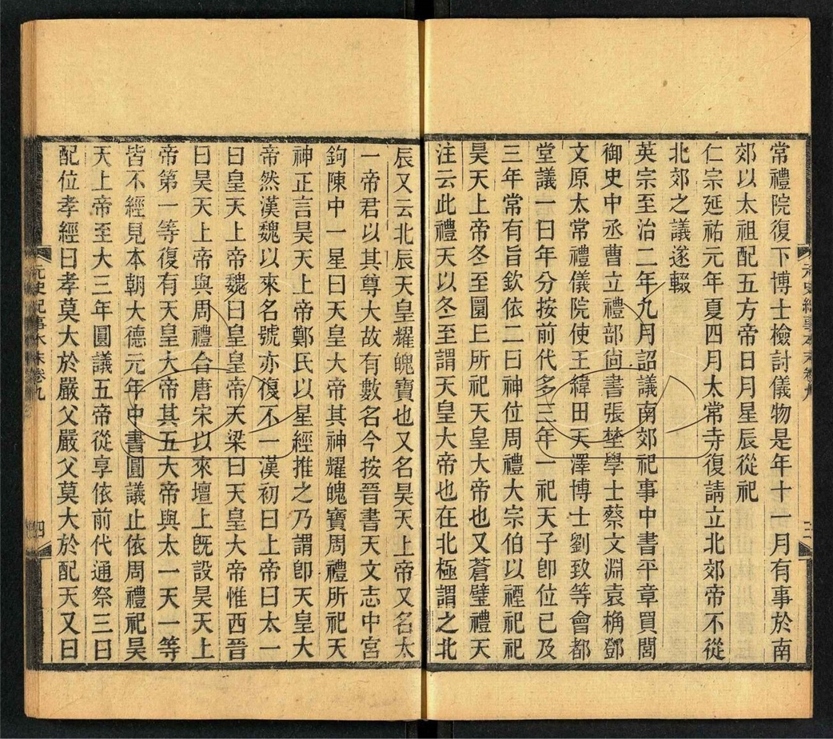 常禮院復下博士檢討儀物是年十一月有事於南
郊以太祖配五方帝日月星辰從祀
仁宗延祐元年夏四月太常寺復請立北郊帝不從
北郊之議遂輟
英宗至治二年九月詔議南郊祀事中書平章買閭
御史中丞曹立禮部尙書張埜學士蔡文淵袁桷鄧
文原太常禮儀院使王緯田天澤博士劉致等會都
堂議一曰年分按前代多三年一祀天子卽位已及
三年常有旨欽依二曰神位周禮大宗伯以禋祀祀
昊天上帝冬至圜丘所祀天皇大帝也又蒼璧禮天
注云此禮天以冬至謂天皇大帝也在北極謂之北
元史紀事本末卷九
三
辰又云北辰天皇耀魄寶也又名昊天上帝又名太
一帝君以其尊大故有數名今按晉書天文志中宮
鉤陳中一星曰天皇大帝其神耀魄寶周禮所祀天
神正言昊天上帝鄭氏以星經推之乃謂卽天皇大
帝然漢魏以來名號亦復不一漢初曰上帝曰太一
曰皇天上帝魏曰皇皇帝天梁曰天皇大帝惟西晉
曰昊天上帝與周禮合唐宋以來壇上旣設昊天上
帝第一等復有天皇大帝其五天帝與太一天一等
皆不經見本朝大德元年中書圓議止依周禮祀昊
天上帝至大三年圓議五帝從享依前代通祭三曰
配位孝經曰孝莫大於嚴父嚴父莫大於配天又曰
元史紀事本末卷九
四